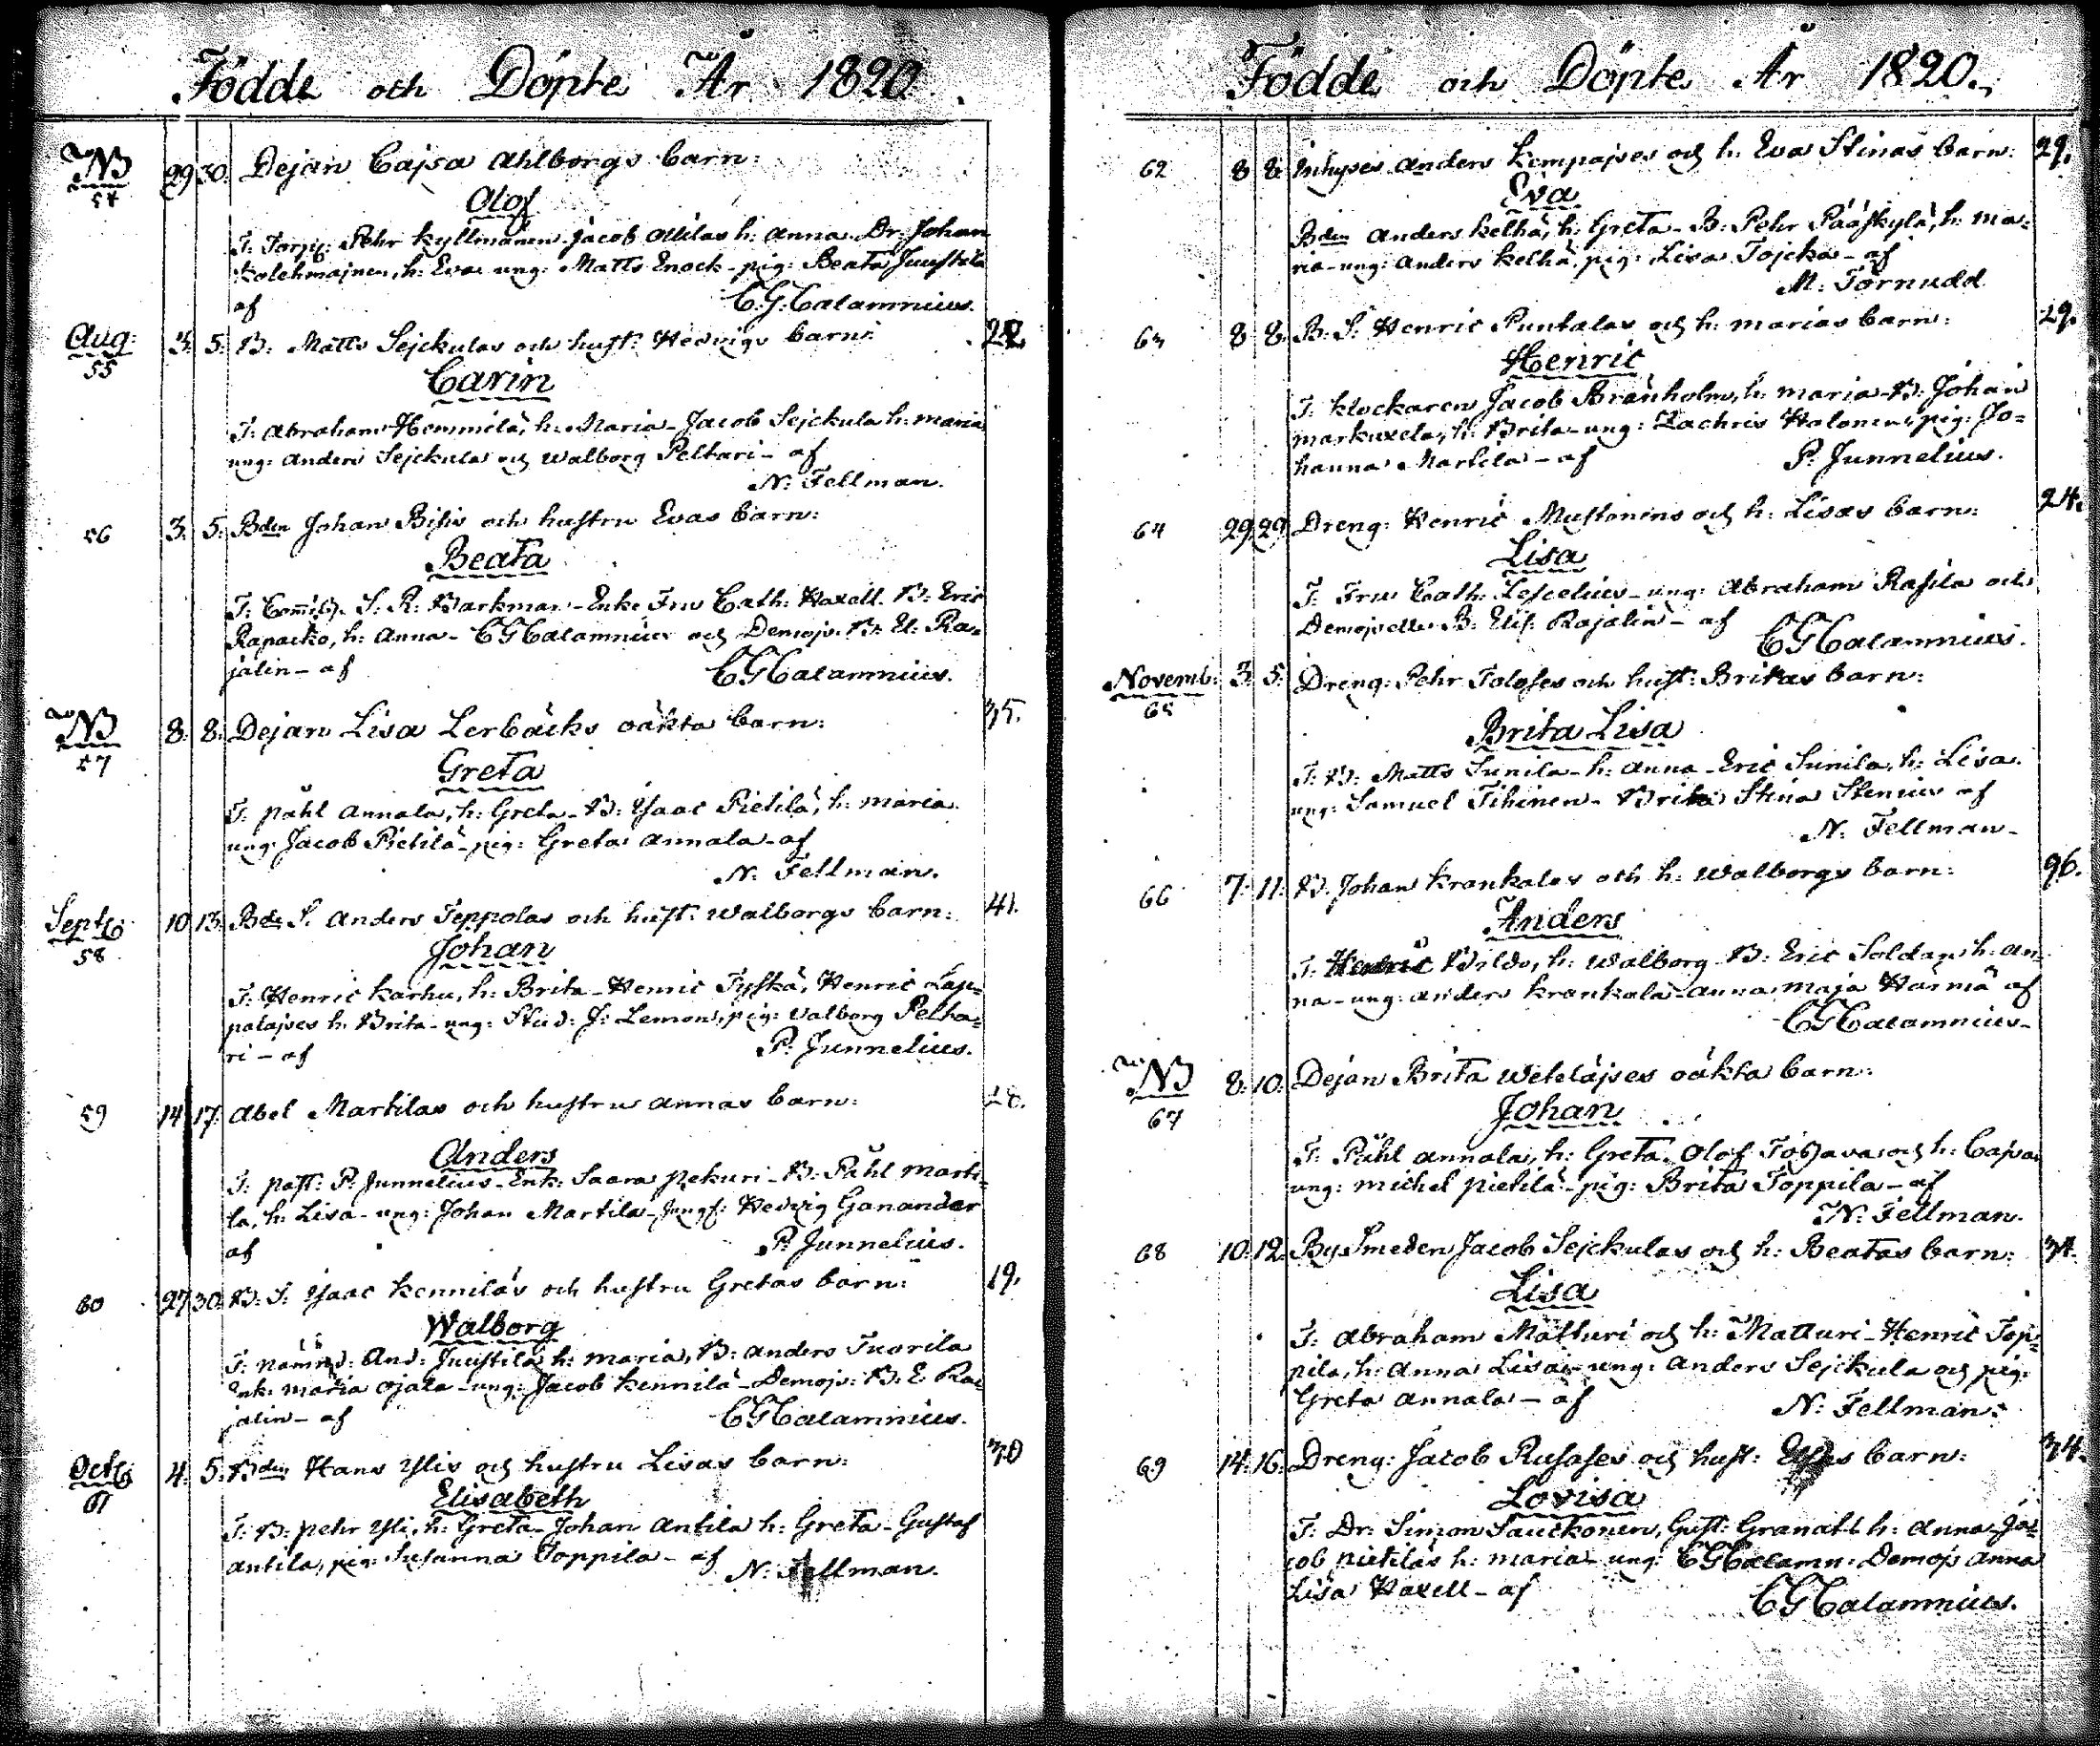 Födde och Döpte År 1820.
NB 54 29 30. Dejan Cajsa Ahlborgs barn:
Olof
F: Torp: Pehr Kyllmänen Jacob Attilas h: Anna. Dr: Johan
Kolehmajnen, h: Eva ung: Matts Enock - pig: Beata Juustila
af C.G. Calamnius.
Aug: 55 3. 5. B: Matts Sejckulas och hust: Hedvigs barn: 22.
Carin
F: Abraham Hemmilä, h: Maria - Jacob Sejckula h: Maria
ung: Anders Sejckula och Walborg Peltari - af
N: Fellman.
56 3. 5. Bden Johan Bisis och hustru Evas barn:
Beata
F: Commis: S: R: Barkman - Enke Fru Cath: Haxell. B: Eric
Rapacko, h: Anna - C G Calamnius och Demojs. B: El: Ra=
jalin - af C G Calamnius.
NB 57 8. 8. Dejan Lisa Lerbäcks oäkta barn: 35.
Greta
F: påhl Annala, h: Greta - B: Isaac Pietilä, h: Maria
ung: Jacob Pietilä - pig: Greta Annala - af
N: Fellman.
Septb 58 10 13. Bde S. Anders Teppolas och hust: Walborgs barn: 41.
Johan
F: Henric Karhu, h: Brita - Henric Tyskä, Henric Lap=
palajses h: Brita - ung: Stud: J: Lemon, pig: Valborg Pelta=
ri - af P: Junnelius.
59 14 17. Abel Martilas och hustru Annas barn:
Anders
F: past: P: Junnelius - Enk: Saara Pekuri - B: Påhl Marti=
la, h: Lisa - ung: Johan Martila - Jungf: Hedvig Ganander
af P: Junnelius.
60 27 30. B: S: Isaac Kenniläs och hustru Gretas barn: 19.
Walborg
F: nämnd: And: Juustila h: Maria, B: Anders Tuorila
Enk: Maria Ojala - ung: Jacob Kennilä - Demojs: B: E Ra=
jalin - af C G Calamnius.
Octb 61 4. 5. Bden Hans Ylis och hustru Lisas barn: 30
Elisabeth
F: B: pehr Yli, h: Greta - Johan Antila h: Greta - Gustaf
Antila, pig: Susanna Toppila - af N: Fellman.
Födde och Döpte År 1820.
62 8 8. Inhyses Anders Kempajses och h: Eva Stinas barn: 29.
Eva
Bden Anders Kelhä, h: Greta - B: Pehr Pääskylä, h: Ma=
ria - ung: Anders Kelhä pig: Lisa Tojcka - af
M: Törnudd.
63 8 8. B. S: Henric Puntalas och h: Marias barn: 29.
Henric
F: Klockaren Jacob Bränholm, h: Maria - B: Johan
Markuxela, h: Brita - ung: Zachris Halonen, pig: Jo=
hanna Martila - af P: Junnelius.
64 29 29. Dreng: Henric Mustonens och h: Lisas barn: 24.
Lisa
F: Fru Cath: Lescelius - ung: Abraham Rasila och
Demojselle B: Elis: Rajalin - af C G Calamnius.
Novemb: 65 3. 5. Dreng: Pehr Toloses och hust: Britas barn:
Brita Lisa
F: B: Matts Sunila - h: Anna - Eric Sunila, h: Lisa.
ung: Samuel Tihinen - Brita Stina Stenius af
N: Fellman -
66 7. 11. B. Johan Krankalas och h: Walborgs barn: 96.
Anders
F: Henric Wildo, h: Walborg - B: Eric Soldan, h: An=
na - ung: Anders Krankala - Anna Maja Härmä af
C G Calamnius -
NB 67 8. 10. Dejan Brita Weteläjses oäkta barn:
Johan
F: Påhl Annala, h: Greta. Olof Tojjava och h: Cajsa
ung: Michel Pietilä - pig: Brita Toppila - af
N: Fellman.
68 10. 12. By Smeden Jacob Sejckulas och h: Beatas barn: 34.
Lisa
F: Abraham Matturi och h: Matturi - Henric Top=
pila, h: Anna Lisa - ung: Anders Sejckula och pig:
Greta Annala - af N: Fellman.
69 14. 16. Dreng: Jacob Rusases och hust: barn: 34.
Lovisa
F: Dr: Simon Sauckonen, Gust: Granatt h: Anna Ja=
cob pietiläs h: Maria - ung: C G Calamn: Demojs Anna
Lisa Haxell - af C G Calamnius.